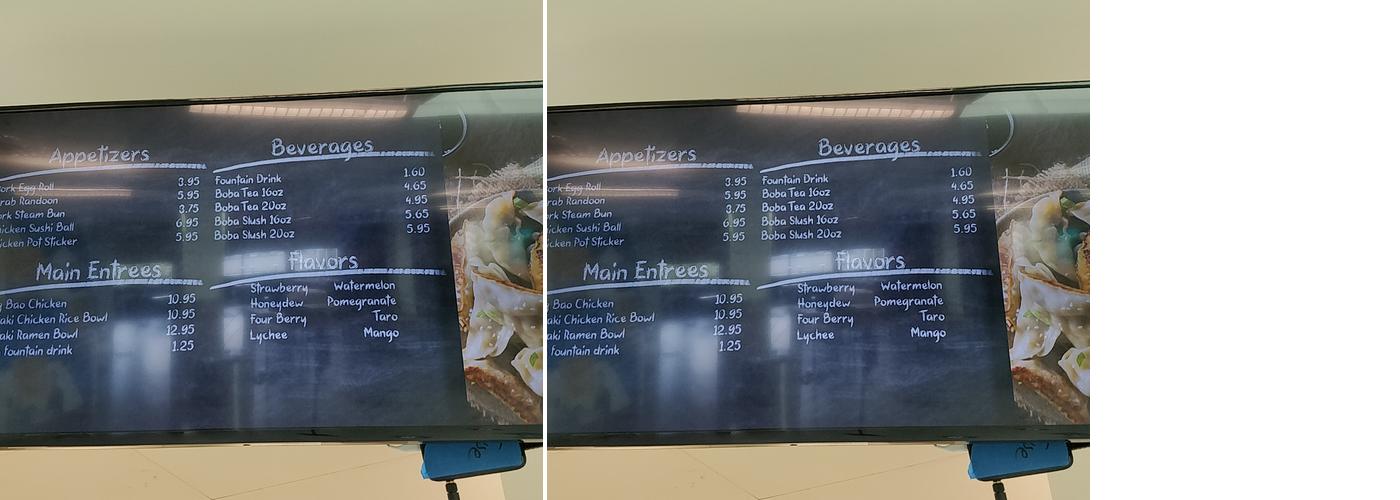 Appetizers
Egg Roll 3.95
Randoon 5.95
Steam Bun 3.75
Sushi Ball 6.95
Pot Sticker 5.95
Main Entrees
Bao Chicken 10.95
Chicken Rice Bowl 10.95
Ramen Bowl 12.95
fountain drink 1.25
Beverages
Fountain Drink 1.60
Boba Tea 16oz 4.65
Boba Tea 20oz 4.95
Boba Slush 16oz 5.65
Boba Slush 20oz 5.95
Flavors
Strawberry Watermelon
Honeydew Pomegranate
Four Berry Taro
Lychee Mango
Appetizers
Egg Roll 3.95
Randoon 5.95
Steam Bun 3.75
Sushi Ball 6.95
Pot Sticker 5.95
Main Entrees
Bao Chicken 10.95
Chicken Rice Bowl 10.95
Ramen Bowl 12.95
fountain drink 1.25
Beverages
Fountain Drink 1.60
Boba Tea 16oz 4.65
Boba Tea 20oz 4.95
Boba Slush 16oz 5.65
Boba Slush 20oz 5.95
Flavors
Strawberry Watermelon
Honeydew Pomegranate
Four Berry Taro
Lychee Mango